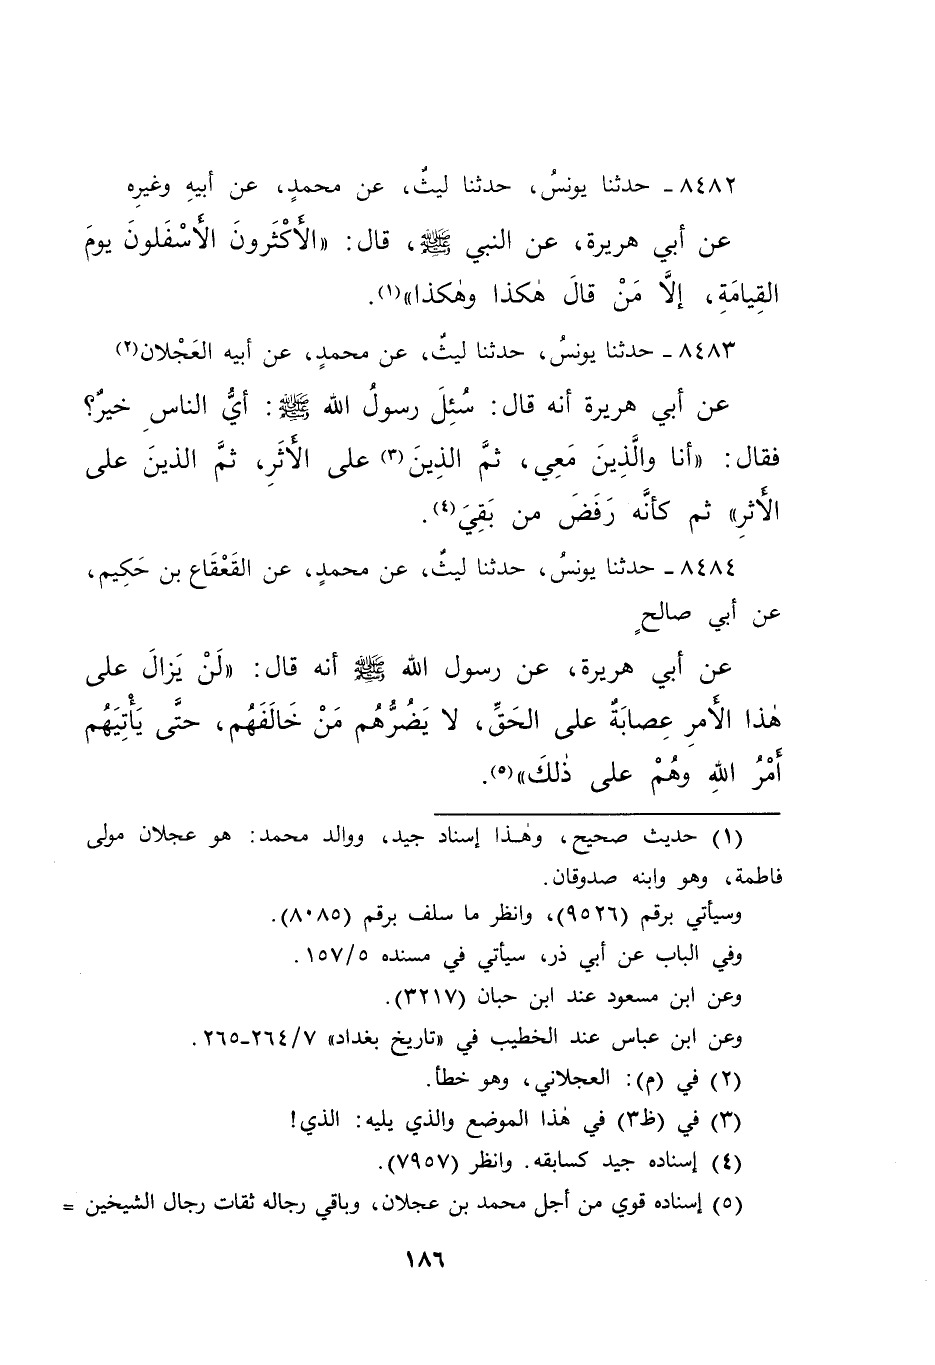 ٨٤٨٢ ـ حدثنا يونسُ، حدثنا ليثٌ، عن محمدٍ، عن أبيهِ وغيرِه
عن أبي هريرة، عن النبي ﷺ، قال: «الأَكْثَرونَ الأَسْفَلونَ يومَ
القِيامَةِ، إلَّا مَنْ قالَ هٰكذا وهٰكذا»(١).
٨٤٨٣ ـ حدثنا يونسُ، حدثنا ليثٌ، عن محمدٍ، عن أبيه العَجْلان(٢)
عن أبي هريرة أنه قال: سُئِلَ رسولُ الله ﷺ: أيُّ الناسِ خيرٌ؟
فقال: «أنا والَّذِينَ مَعِي، ثمَّ الذِينَ(٣) على الأَثَرِ، ثمَّ الذينَ على
الأَثرِ» ثم كأنَّه رَفَضَ من بَقِيَ(٤).
٨٤٨٤ ـ حدثنا يونسُ، حدثنا ليثٌ، عن محمدٍ، عن القَعْقَاع بن حَكِيم،
عن أبي صالحٍ
عن أبي هريرة، عن رسول الله ﷺ أنه قال: «لَنْ يَزالَ على
هٰذا الأَمرِ عِصابَةٌ على الحَقِّ، لا يَضُرُّهُم مَنْ خَالَفَهُم، حتَّى يَأْتِيَهُم
أَمْرُ اللهِ وهُمْ على ذٰلكَ»(٥).
(١) حديث صحيح، وهٰذا إسناد جيد، ووالد محمد: هو عجلان مولى
فاطمة، وهو وابنه صدوقان.
وسيأتي برقم (٩٥٢٦)، وانظر ما سلف برقم (٨٠٨٥).
وفي الباب عن أبي ذر، سيأتي في مسنده ١٥٧/٥.
وعن ابن مسعود عند ابن حبان (٣٢١٧).
وعن ابن عباس عند الخطيب في «تاريخ بغداد» ٢٦٤/٧-٢٦٥.
(٢) في (م): العجلاني، وهو خطأ.
(٣) في (ظ٣) في هٰذا الموضع والذي يليه: الذي!
(٤) إسناده جيد كسابقه. وانظر (٧٩٥٧).
(٥) إسناده قوي من أجل محمد بن عجلان، وباقي رجاله ثقات رجال الشيخين =
١٨٦